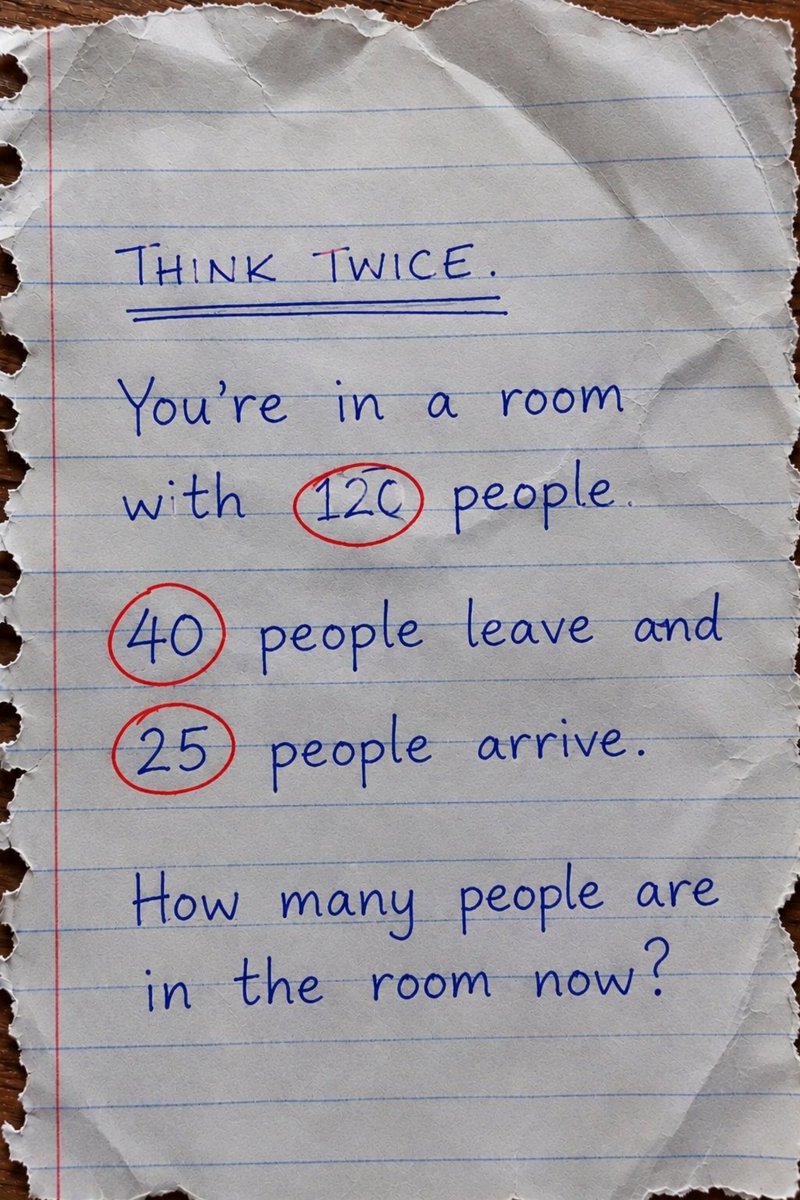 THINK TWICE.
You're in a room
with 120 people.
40 people leave and
25 people arrive.
How many people are
in the room now?